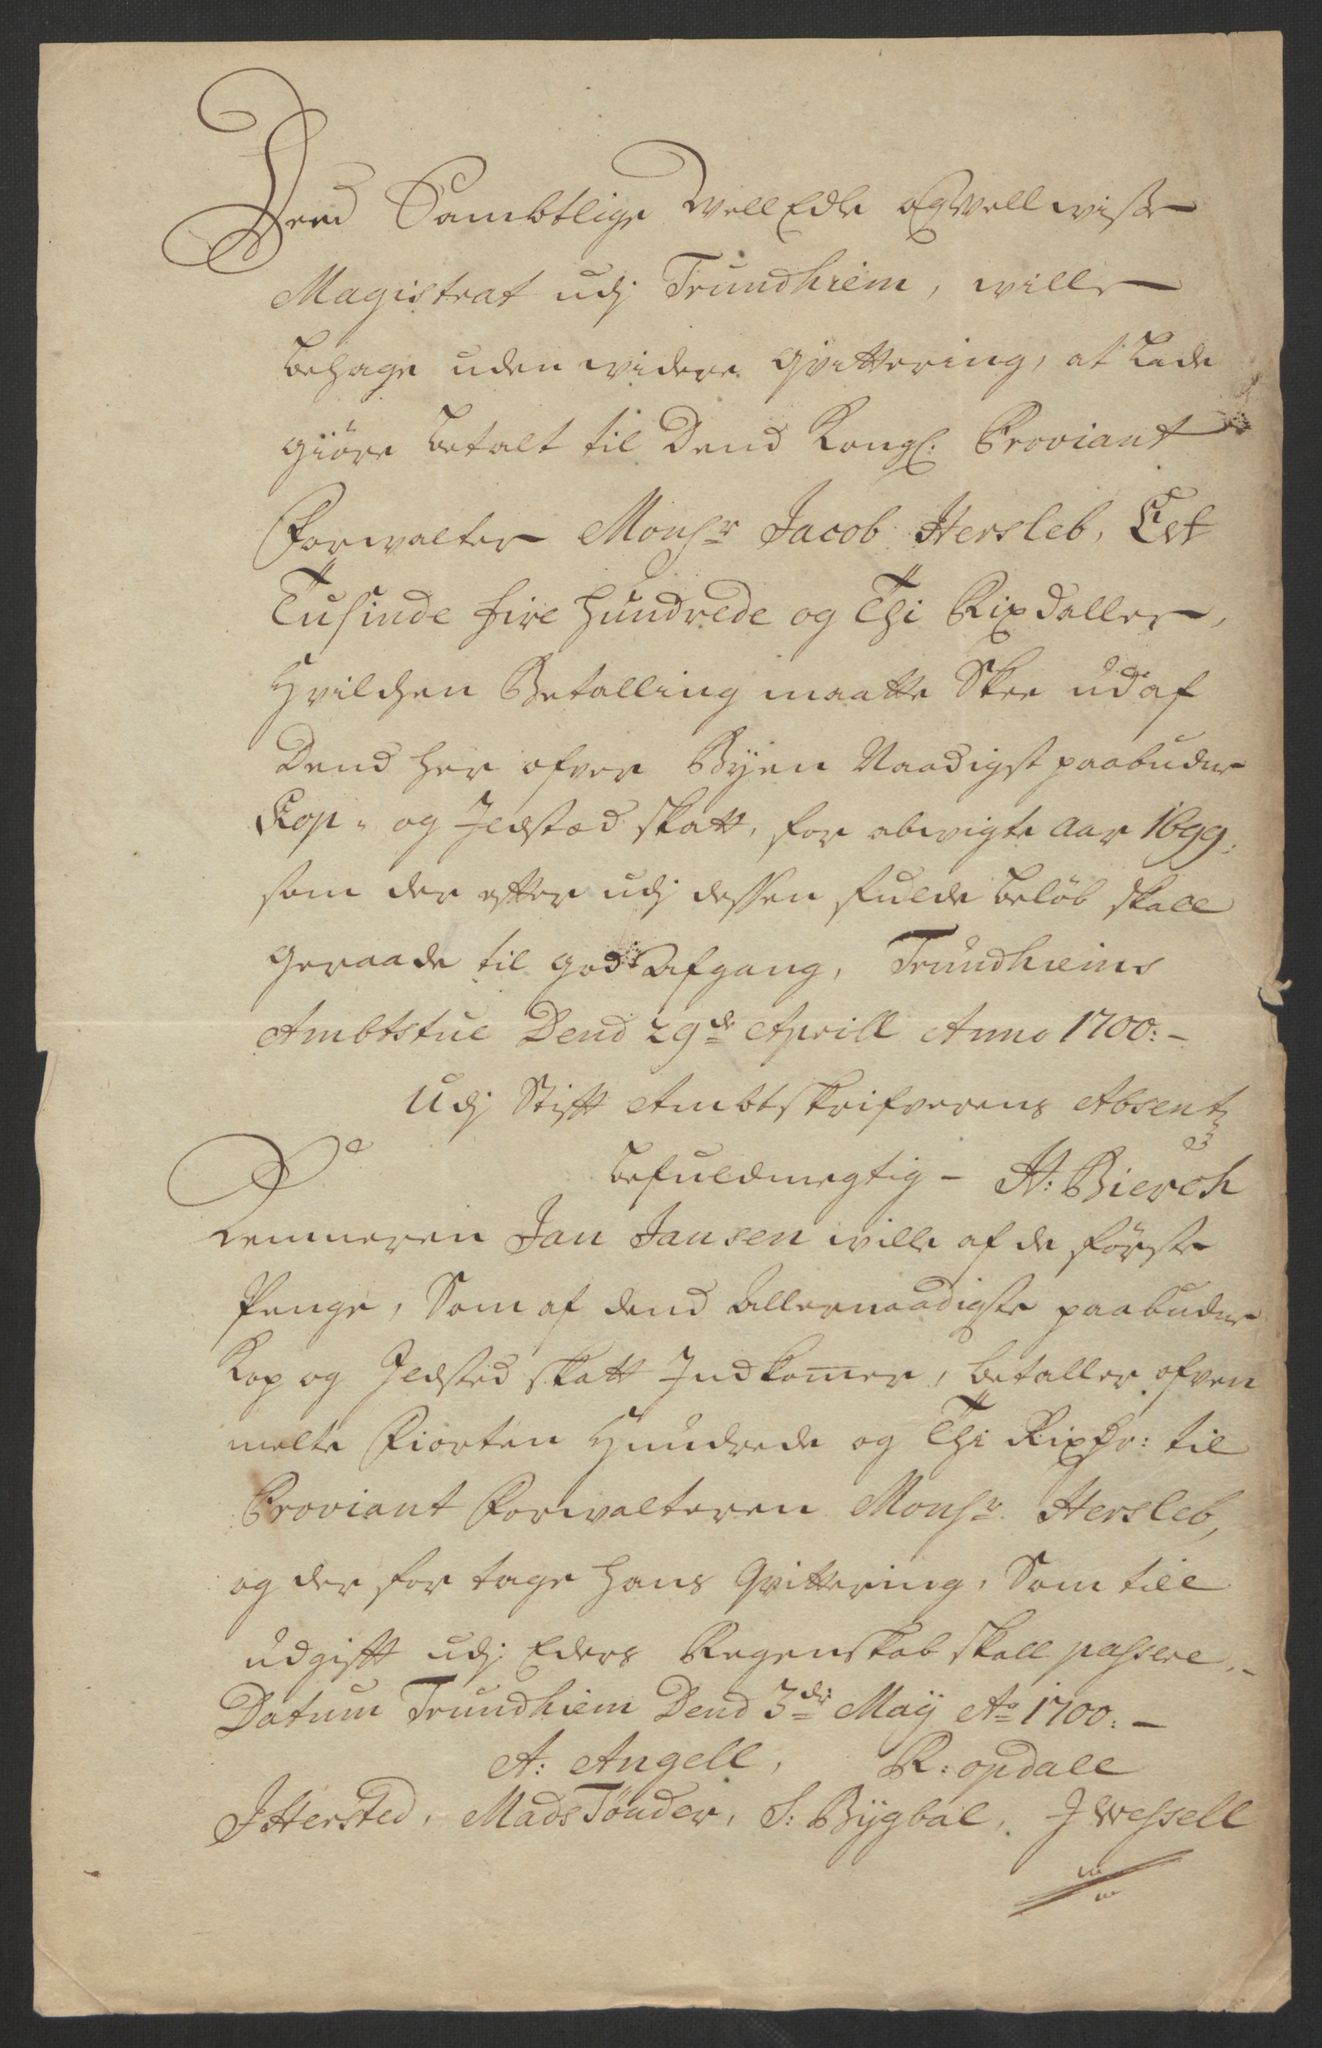 Dend Sambtlige Well Edle og Vell wise
Magistrat udj Trundhiem, wille
behage uden widere qvittering, at lade
giöre betalt til Dend Kongl: Proviant
Forwalter Monsr Jacob Hersleb, Et
Tusinde fire hundrede og Thi Rixdaller,
Hvilchen Betalling maatte Skee ud af
Dend her ofver Byen Naadigst paabudne
Kop- og Ildsted skatt, for abvigte Aar 1699.
som der efter udj dessen fulde beløb skall
geraade til god Afgang, Trundhiems
Ambtstue Dend 29de Aprill Anno 1700:-
Udj Stifft Ambtskrifverens Absentz
befuldmegtig - H: Bierch
Kemneren Jan Jansen wille af de förste
Penge, Som af dend Allernaadigste paabudne
Kop og Ildsted skatt Indkomer, betaller ofven
melte Fiorten Hundrede og Thi Rixdr: til
Proviant Forwalteren Monsr. Hersleb,
og der for tage hans Qvittering, Som till
udgifft udj Eders Regenskab skall passere.-
Datum Trundhiem Dend 3de May Ao 1700.-
A: Angell, R: opdall
J Hersted, Mads Tönder, S: Bygbal, J Wessell